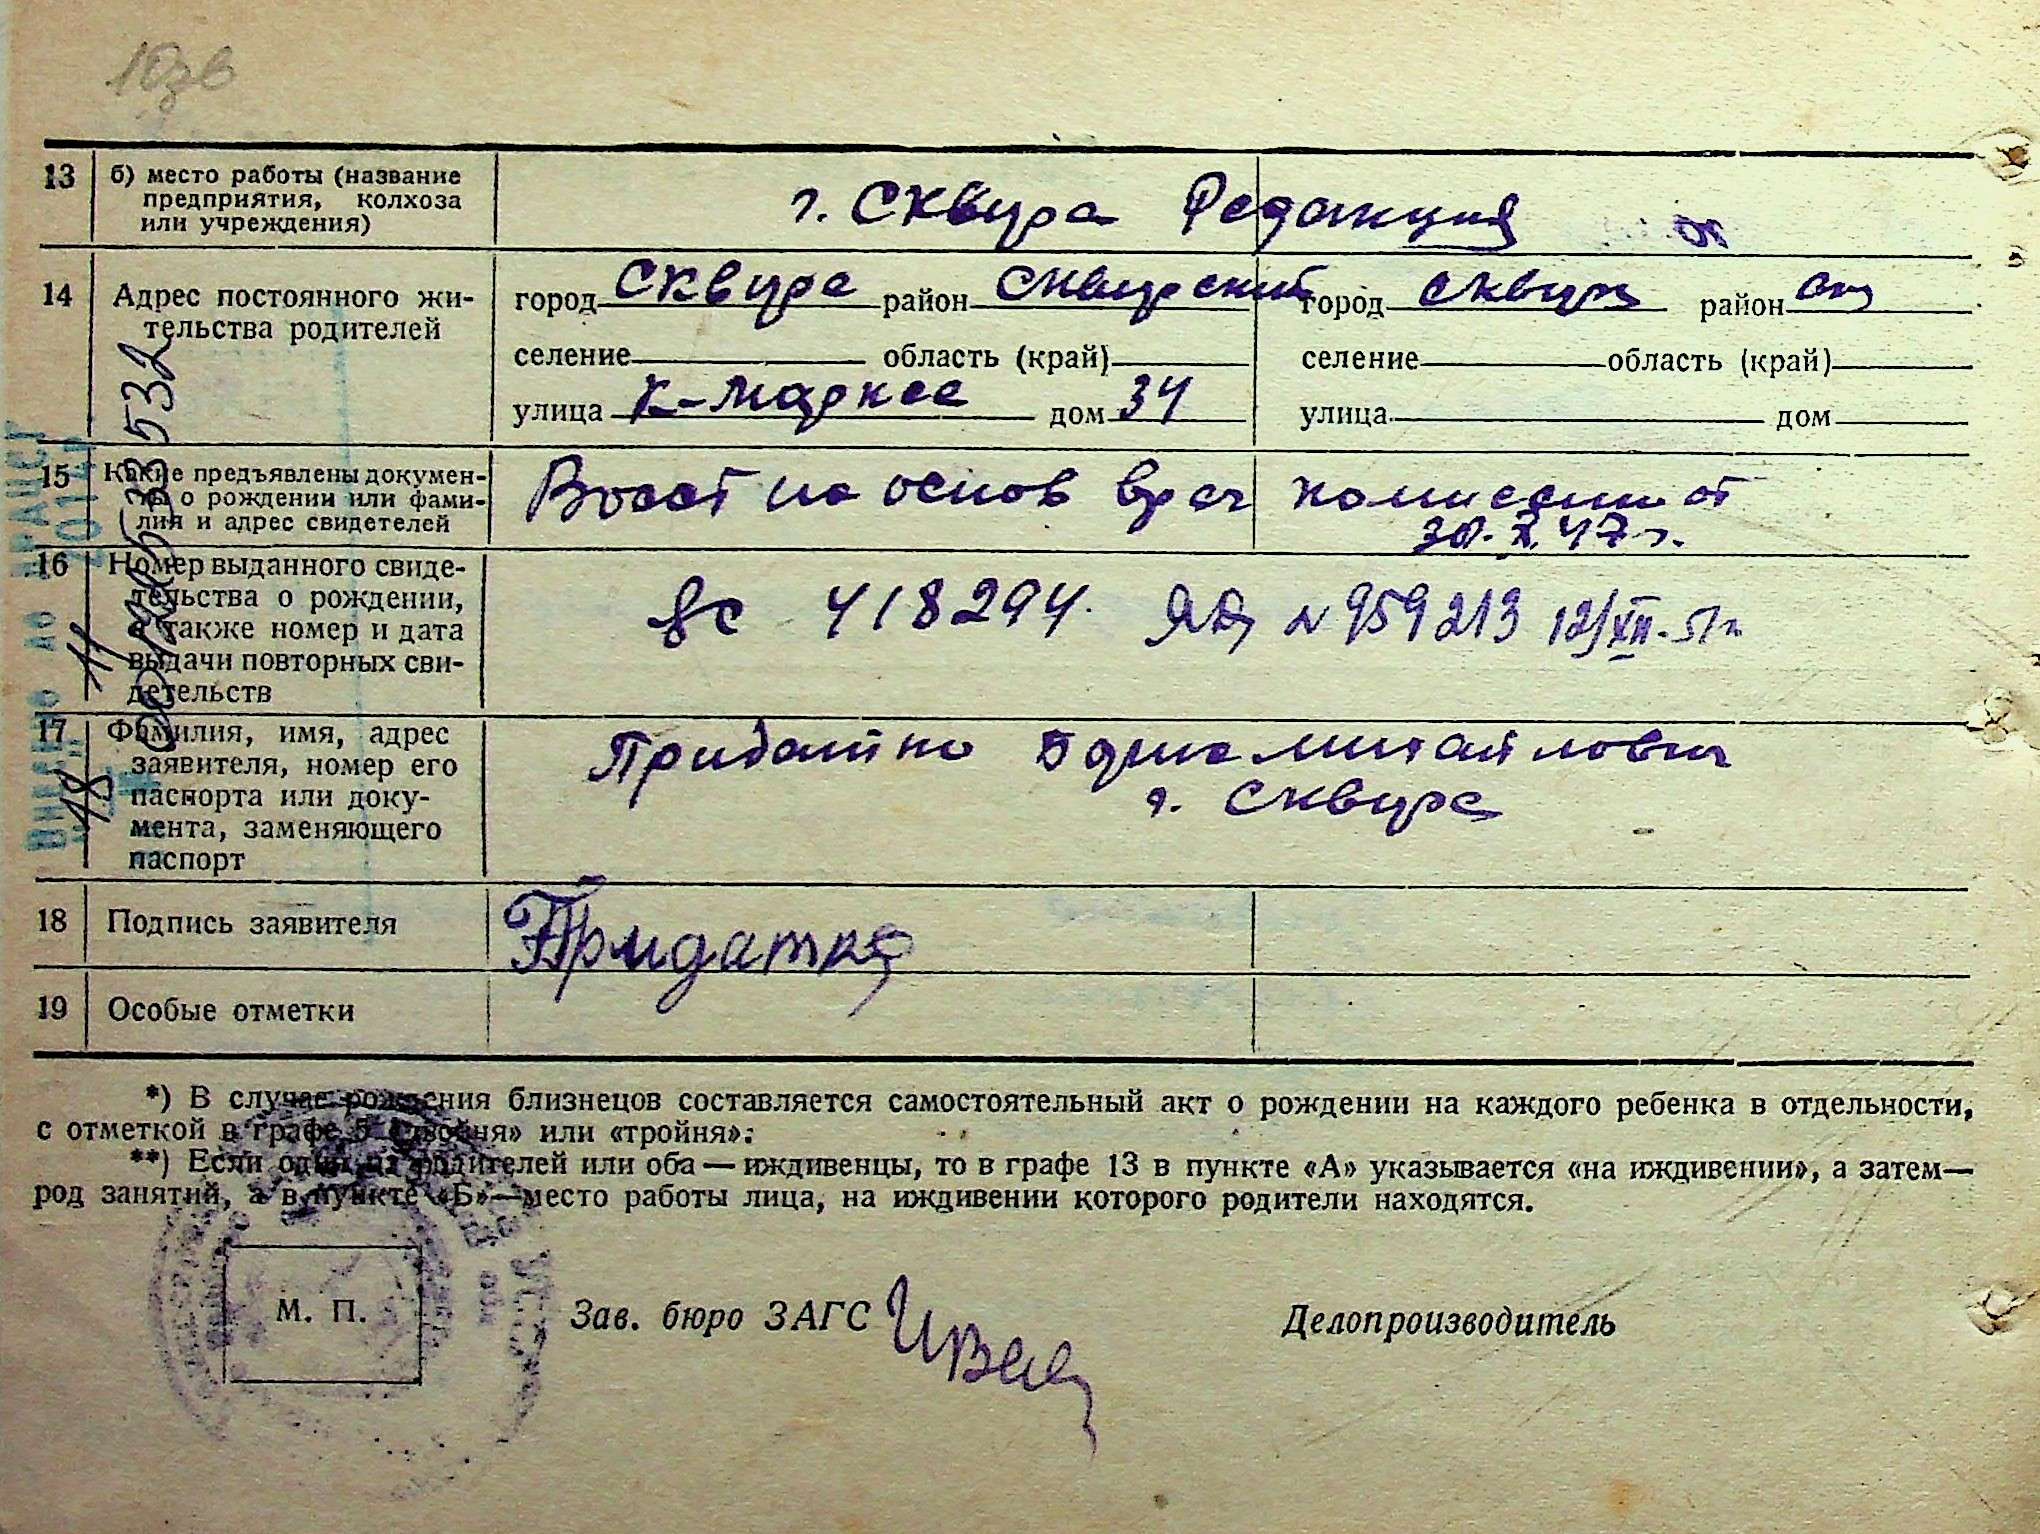 10зв
13 б) место работы (название
предприятия, колхоза
или учреждения)
г. Сквира Редакция
14 Адрес постоянного жи-
тельства родителей
город Сквира район Сквирский город Сквира район
селение область (край) селение область (край)
улица К-Маркса дом 34 улица дом
15 Какие предъявлены докумен-
ты о рождении или фами-
лия и адрес свидетелей
Восст на основ врач комиссии от
30.X.47 г.
16 Номер выданного свиде-
тельства о рождении,
а также номер и дата
выдачи повторных сви-
детельств
418294 N 959213 12/XII-51г
17 Фамилия, имя, адрес
заявителя, номер его
паспорта или доку-
мента, заменяющего
паспорт
Михайловн
г. Сквира
18 Подпись заявителя
Придатко
19 Особые отметки
*) В случае рождения близнецов составляется самостоятельный акт о рождении на каждого ребенка в отдельности,
с отметкой в графе 5 «двойня» или «тройня».
**) Если один из родителей или оба — иждивенцы, то в графе 13 в пункте «А» указывается «на иждивении», а затем—
род занятий, а в пункте «Б»—место работы лица, на иждивении которого родители находятся.
М. П.
Зав. бюро ЗАГС
Делопроизводитель